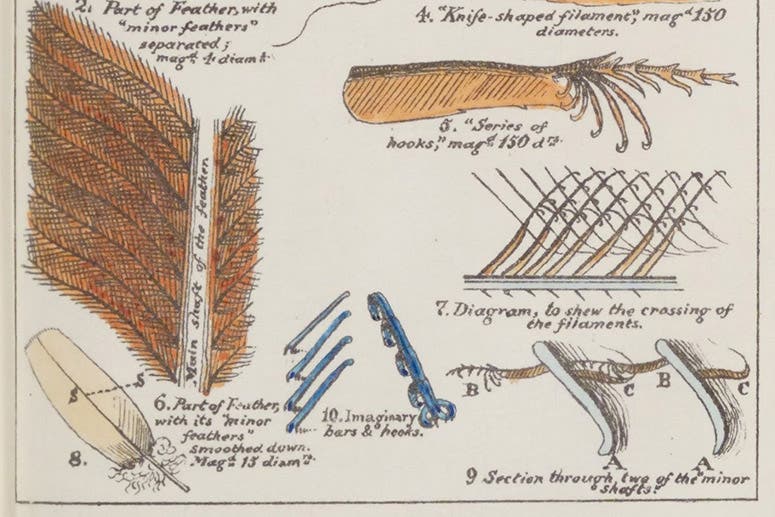 2. Part of Feather, with
"minor feathers"
separated;
magd. 4 diamrs.
4. "Knife-shaped filament", magd. 150
diameters.
5. "Series of
hooks," magd. 150 drs.
Main shaft of the feather.
7. Diagram, to shew the crossing of
the filaments.
S S
8.
6. Part of Feather,
with its "minor
feathers"
smoothed down.
Magd. 15 diamrs.
10. Imaginary
bars & hooks.
B C B C
A A
9 Section through two of the "minor
shafts."